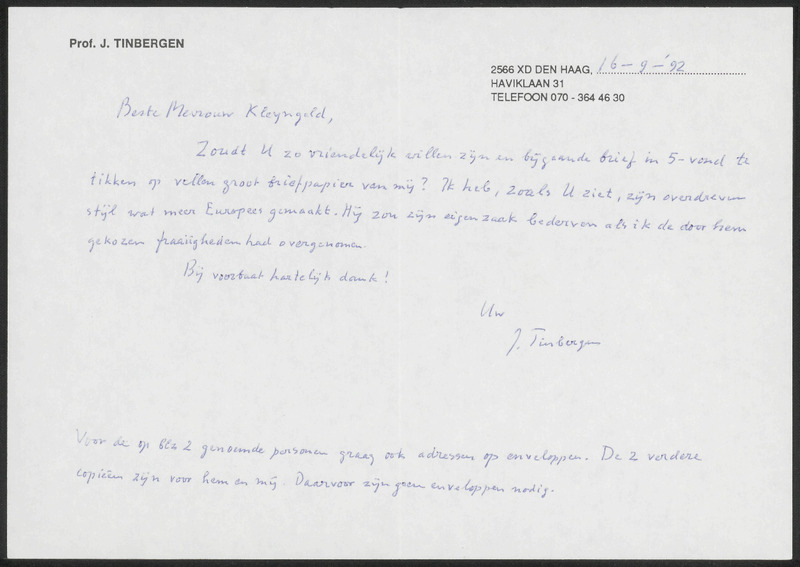 Prof. J. TINBERGEN
2566 XD DEN HAAG, 16-9-'92
HAVIKLAAN 31
TELEFOON 070 - 364 46 30
Beste Mevrouw Kleyngeld,
Zoudt U zo vriendelijk willen zijn en bijgaande brief in 5-voud te
tikken op vellen groot briefpapier van mij? Ik heb, zoals U ziet, zijn overdreven
stijl wat meer Europees gemaakt. Hij zou zijn eigen zaak bederven als ik de door hem
gekozen fraaiigheden had overgenomen.
Bij voorbaat hartelijk dank!
Uw
J. Tinbergen
Voor de op blz 2 genoemde personen graag ook adressen op enveloppen. De 2 verdere
copieën zijn voor hem en mij. Daarvoor zijn geen enveloppen nodig.